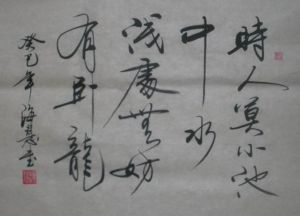 時人莫小池
中水
浅處無妨
有卧龍
癸巳年海